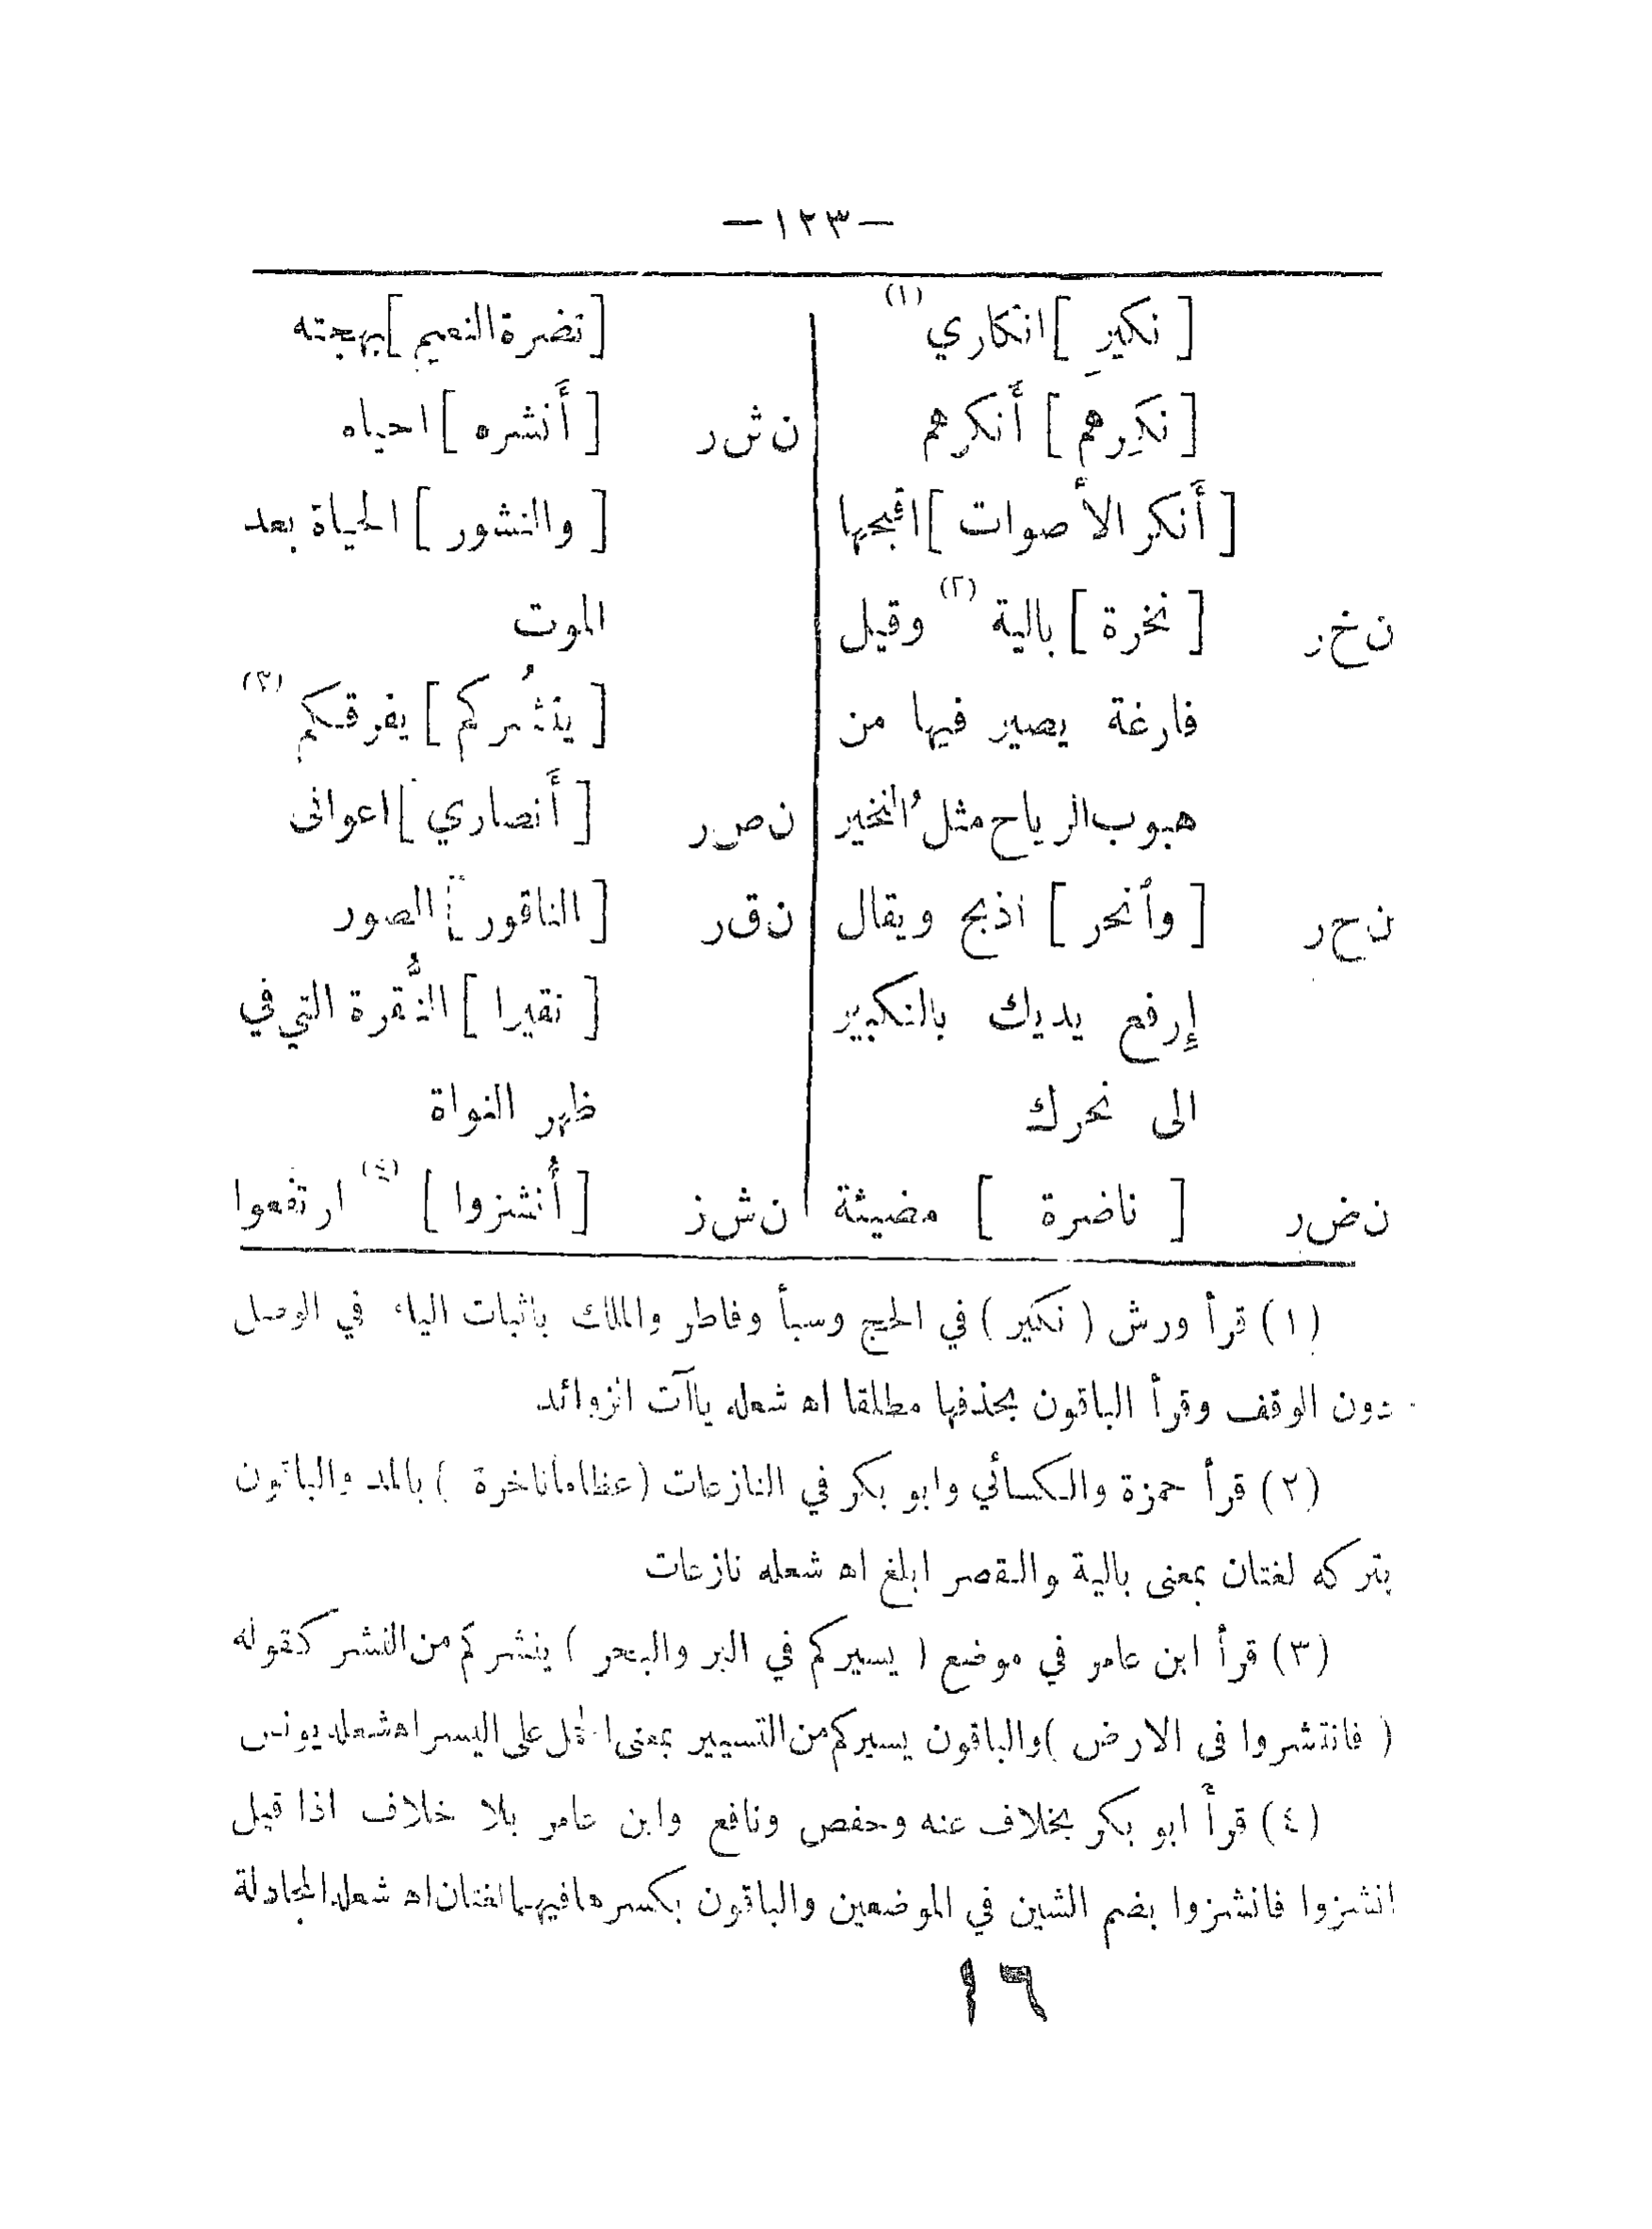 —١٢٣—
[ نكيرِ ] انكاري (١)
[ نكِرهم ] أَنكرهم
[ أَنكر الأصوات ] اقبحها
ن خ ر [ نخرة ] بالية (٢) وقيل
فارغة يصير فيها من
هبوب الرياح مثل النخير
ن ح ر [ وأنحر ] اذبح ويقال
إرفع يديك بالتكبير
الى نحرك
ن ض ر [ ناضرة ] مضيئة
[ نضرة النعيم ] بهجته
ن ش ر [ أَنشره ] احياه
[ والنشور ] الحياة بعد
الموت
[ ينشُركم ] يفرقكم (٣)
ن ص ر [ أَنصاري ] اعوانى
ن ق ر [ الناقور ] الصور
[ نقيرا ] النُّقرة التي في
ظهر النواة
ن ش ز [ أُنشزوا ] (٤) ارتفعوا
(١) قرأ ورش ( نكير ) في الحج وسبأ وفاطر والملك باثبات الياء في الوصل
دون الوقف وقرأ الباقون بحذفها مطلقا اه شعله ياآت الزوائد
(٢) قرأ حمزة والكسائي وابو بكر في النازعات ( عظاما ناخرة ) بالمد والباقون
بتركه لغتان بمعنى بالية والقصر ابلغ اه شعله نازعات
(٣) قرأ ابن عامر في موضع ( يسيركم في البر والبحر ) ينشركم من النشر كقوله
( فانتشروا فى الارض ) والباقون يسيركم من التسيير بمعنى الحمل على اليسر اه شعله يونس
(٤) قرأ ابو بكر بخلاف عنه وحفص ونافع وابن عامر بلا خلاف اذا قيل
انشزوا فانشزوا بضم الشين في الموضعين والباقون بكسرها فيهما لغتان اه شعله المجادلة
١٦